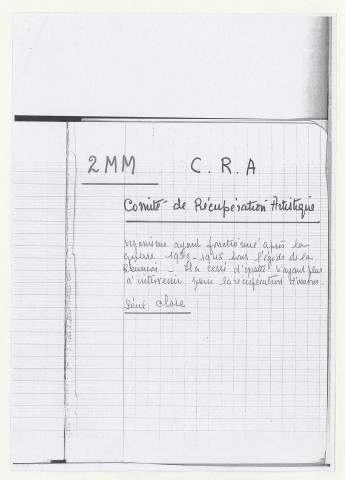 2MM C.R.A
Comité de Récupération Artistique
organisme ayant fonctionné après la
guerre 1939-1945 sous l'égide de la
Réunion - Il a cessé d'exister n'ayant plus
à intervenir pour la récupération d'œuvres.
Série close